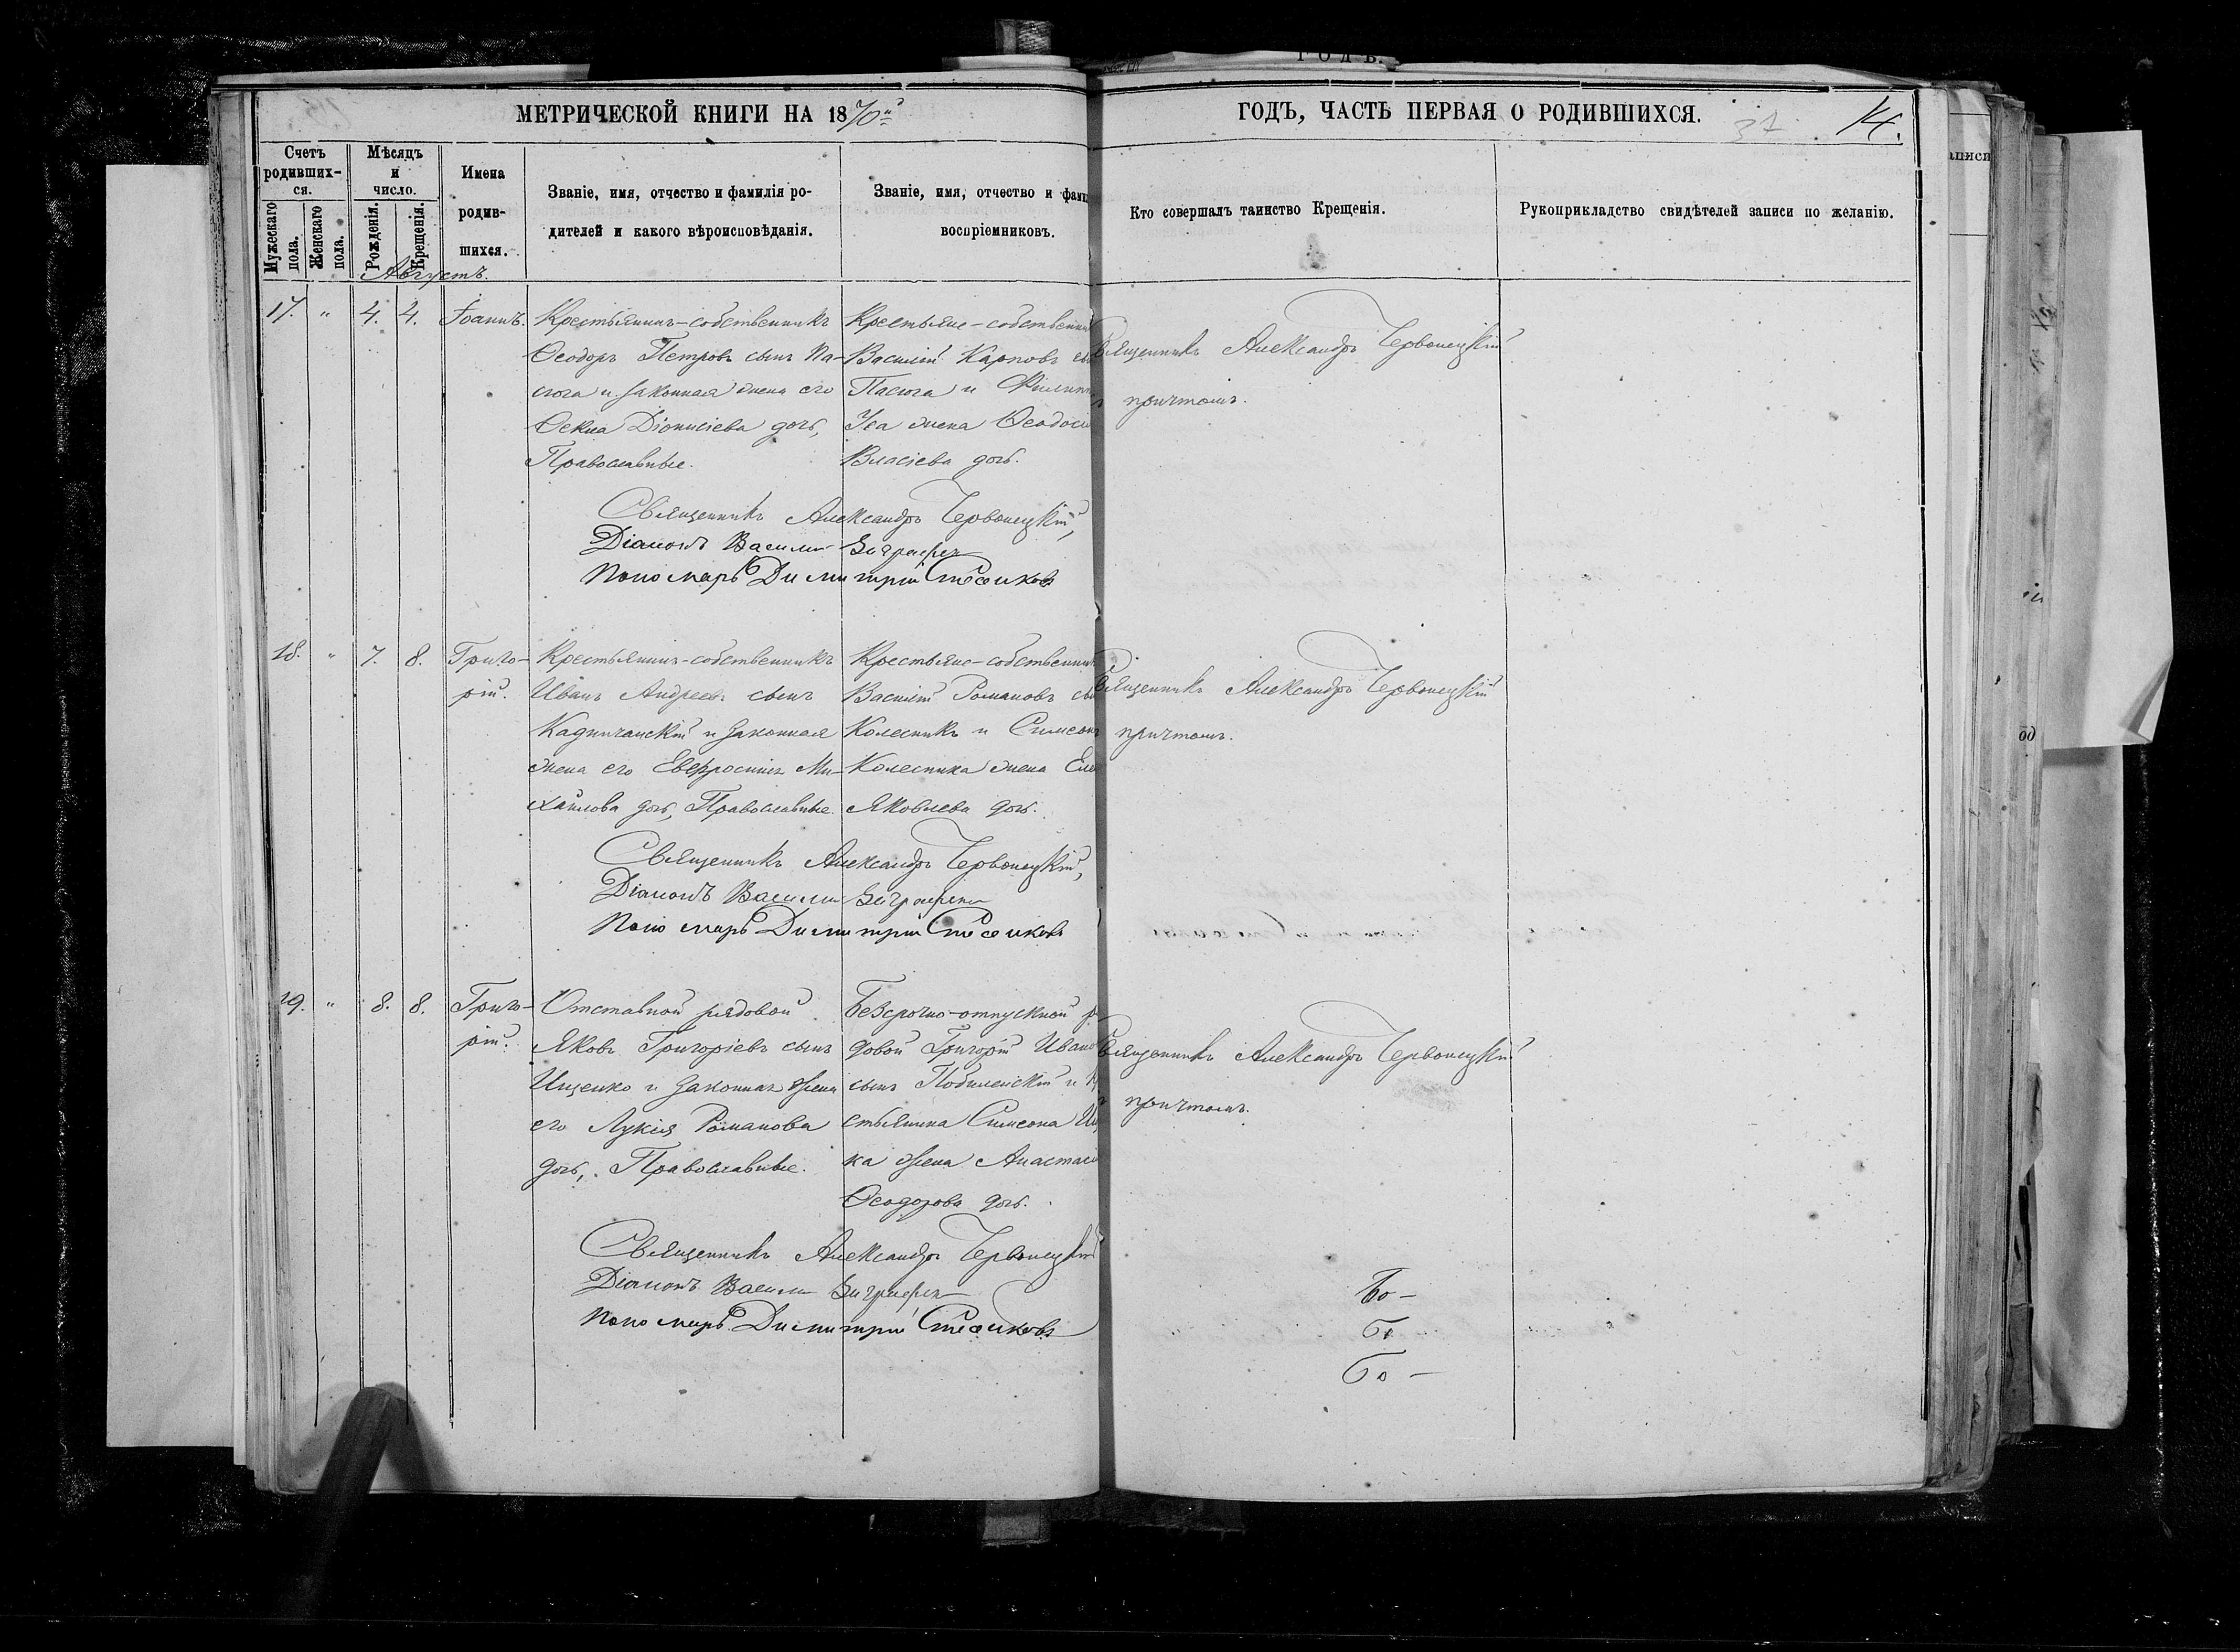 МЕТРИЧЕСКОЙ КНИГИ НА 1870й
ГОДЪ, ЧАСТЬ ПЕРВАЯ О РОДИВШИХСЯ.
37
14.
Счетъ родивших-ся.
Мужескаго пола.
Женскаго пола.
Мѣсяцъ и число.
Рожденія.
Крещенія.
Имена родив-шихся.
Званіе, имя, отчество и фамилія ро-
дителей и какого вѣроисповѣданія.
Званіе, имя, отчество и фами
воспріемниковъ.
Кто совершалъ таинство Крещенія.
Рукоприкладство свидѣтелей записи по желанію.
Августъ.
17. " 4. 4. Іоаннъ.
Крестьянинъ-собственникъ
Ѳеодоръ Петровъ сынъ Па-
сюга и законная жена его
Ѳекла Діонисіева дочь,
Православные.
Крестьяне-собственни
Василій Карповъ сы
Пасюга и Филипп
Уса жена Ѳеодосі
Власіева дочь.
Священникъ Александръ Червонецкій
причтомъ.
Священникъ Александръ Червонецкій,
Діаконъ Василій
Пономарь Димитрій
18. " 7. 8. Григо-
рій.
Крестьянинъ-собственникъ
Иванъ Андреевъ сынъ
Кадничанскій и законная
жена его Евфросинія Ми-
хайлова дочь, Православные.
Крестьяне-собственни
Василій Романовъ сы
Колесникъ и Симеон
Колесника жена Еле
Яковлева дочь.
Священникъ Александръ Червонецкій
причтомъ.
Священникъ Александръ Червонецкій,
Діаконъ Василій
Пономарь Димитрій
19. " 8. 8. Григо-
рій.
Отставной рядовой
Яковъ Григоріевъ сынъ
Ищенко и законная жена
его Лукія Романова
дочь, Православные.
Безсрочно-отпускной р
довой Григорій Ивано
сынъ Побилейскій и К
стьянина Симеона Ищ
ка жена Анастасі
Ѳеодорова дочь.
Священникъ Александръ Червонецкій
причтомъ.
Священникъ Александръ Червонецкій
Діаконъ Василій
Пономарь Димитрій